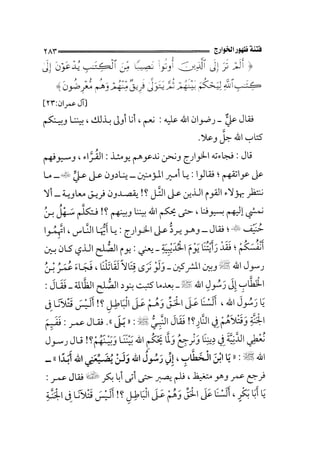 فتنة ظهور الخوارج ٢٨٣
﴿ أَلَمْ تَرَ إِلَى ٱلَّذِينَ أُوتُوا۟ نَصِيبًا مِّنَ ٱلْكِتَٰبِ يُدْعَوْنَ إِلَىٰ
كِتَٰبِ ٱللَّهِ لِيَحْكُمَ بَيْنَهُمْ ثُمَّ يَتَوَلَّىٰ فَرِيقٌ مِّنْهُمْ وَهُم مُّعْرِضُونَ ﴾
[آل عمران: ٢٣]
فقال عليٌّ ـ رضوان الله عليه : نعم ، أنا أولى بذلك ، بيننا وبينكم
كتاب الله جلَّ وعلا.
قال : فجاءته الخوارج ونحن ندعوهم يومئذ : القُرَّاء ، وسيوفهم
على عواتقهم ؛ فقالوا : يا أمير المؤمنين ـ ينادون على عليٍّ ـ ما
ننتظر بهؤلاء القوم الذين على التلِّ ؟! يقصدون فريق معاوية ـ ألا
نمشي إليهم بسيوفنا ، حتى يحكم الله بيننا وبينهم ؟! فتكلَّم سَهْلُ بنُ
حُنَيْفٍ ؛ فقال ـ وهو يردُّ على الخوارج : يا أيُّها النَّاس ، اتَّهِمُوا
أَنْفُسَكُمْ ؛ فَقَدْ رَأَيْتُنَا يَوْمَ الْحُدَيْبِيَةِ ـ يعني : يوم الصُّلح الذي كان بين
رسول الله ﷺ وبين المشركين ـ وَلَوْ نَرَى قِتَالًا لَقَاتَلْنَا ، فَجَاءَ عُمَرُ بْنُ
الْخَطَّابِ إِلَى رَسُولِ الله ﷺ ـ بعدما كتبت بنود الصُّلح الظَّالمة ـ فَقَالَ :
يَا رَسُولَ الله ، أَلَسْنَا عَلَى الْحَقِّ وَهُمْ عَلَى الْبَاطِلِ ؟! أَلَيْسَ قَتْلَانَا فِي
الْجَنَّةِ وَقَتْلَاهُمْ فِي النَّارِ؟! فَقَالَ النَّبِيُّ ﷺ : «بَلَى». فقال عمر : فَفِيمَ
نُعْطِي الدَّنِيَّةَ فِي دِينِنَا وَنَرْجِعُ وَلَمَّا يَحْكُمِ الله بَيْنَنَا وَبَيْنَهُمْ؟! قال رسول
الله ﷺ : «يَا ابْنَ الْخَطَّابِ ، إِنِّي رَسُولُ الله وَلَنْ يُضَيِّعَنِي الله أَبَدًا» ـ
فرجع عمر وهو متغيظ ، فلم يصبر حتى أتى أبا بكر ﷺ فقال عمر :
يَا أَبَا بَكْرٍ ، أَلَسْنَا عَلَى الْحَقِّ وَهُمْ عَلَى الْبَاطِلِ ؟! أَلَيْسَ قَتْلَانَا فِي الْجَنَّةِ